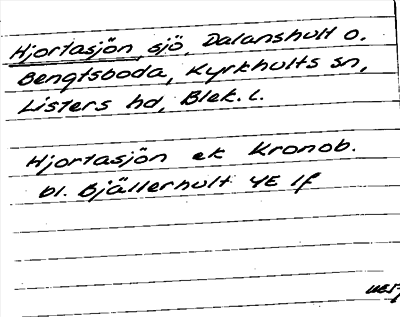 Hjortasjön, sjö, Dalanshult o.
Bengtsboda, Kyrkhults sn,
Listers hd, Blek. l.
Hjortasjön ek Kronob.
bl. Bjällerhult 4E 1f